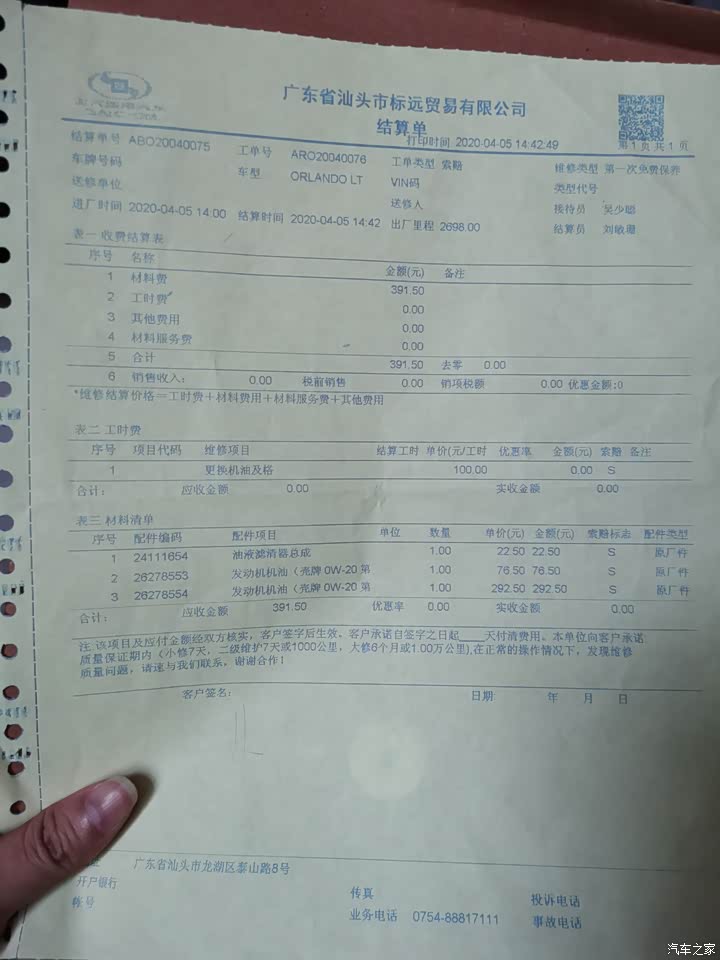 广东省汕头市标远贸易有限公司
结算单
打印时间 2020-04-05 14:42:49 第1页 共1页
结算单号 ABO20040075 工单号 ARO20040076 工单类型 索赔 维修类型 第一次免费保养
车牌号码 车型 ORLANDO LT VIN码 类型代号
送修单位 送修人 接待员 吴少聪
进厂时间 2020-04-05 14:00 结算时间 2020-04-05 14:42 出厂里程 2698.00 结算员 刘敏珊
表一 收费结算表
序号 名称 金额(元) 备注
1 材料费 391.50
2 工时费 0.00
3 其他费用 0.00
4 材料服务费 0.00
5 合计 391.50 去零 0.00
6 销售收入: 0.00 税前销售 0.00 销项税额 0.00 优惠金额:0
*维修结算价格=工时费+材料费用+材料服务费+其他费用
表二 工时费
序号 项目代码 维修项目 结算工时 单价(元/工时 优惠率 金额(元) 索赔 备注
1 更换机油及格 100.00 0.00 S
合计: 应收金额 0.00 实收金额 0.00
表三 材料清单
序号 配件编码 配件项目 单位 数量 单价(元) 金额(元) 索赔标志 配件类型
1 24111654 油液滤清器总成 1.00 22.50 22.50 S 原厂件
2 26278553 发动机机油（壳牌 0W-20 第 1.00 76.50 76.50 S 原厂件
3 26278554 发动机机油（壳牌 0W-20 第 1.00 292.50 292.50 S 原厂件
合计: 应收金额 391.50 优惠率 0.00 实收金额 0.00
注:该项目及应付金额经双方核实，客户签字后生效。客户承诺自签字之日起____天付清费用。本单位向客户承诺:
质量保证期内（小修7天，二级维护7天或1000公里，大修6个月或1.00万公里),在正常的操作情况下，发现维修
质量问题，请速与我们联系，谢谢合作！
客户签名: 日期 年 月 日
广东省汕头市龙湖区泰山路8号
开户银行 传真 投诉电话
帐号 业务电话 0754-88817111 事故电话
汽车之家